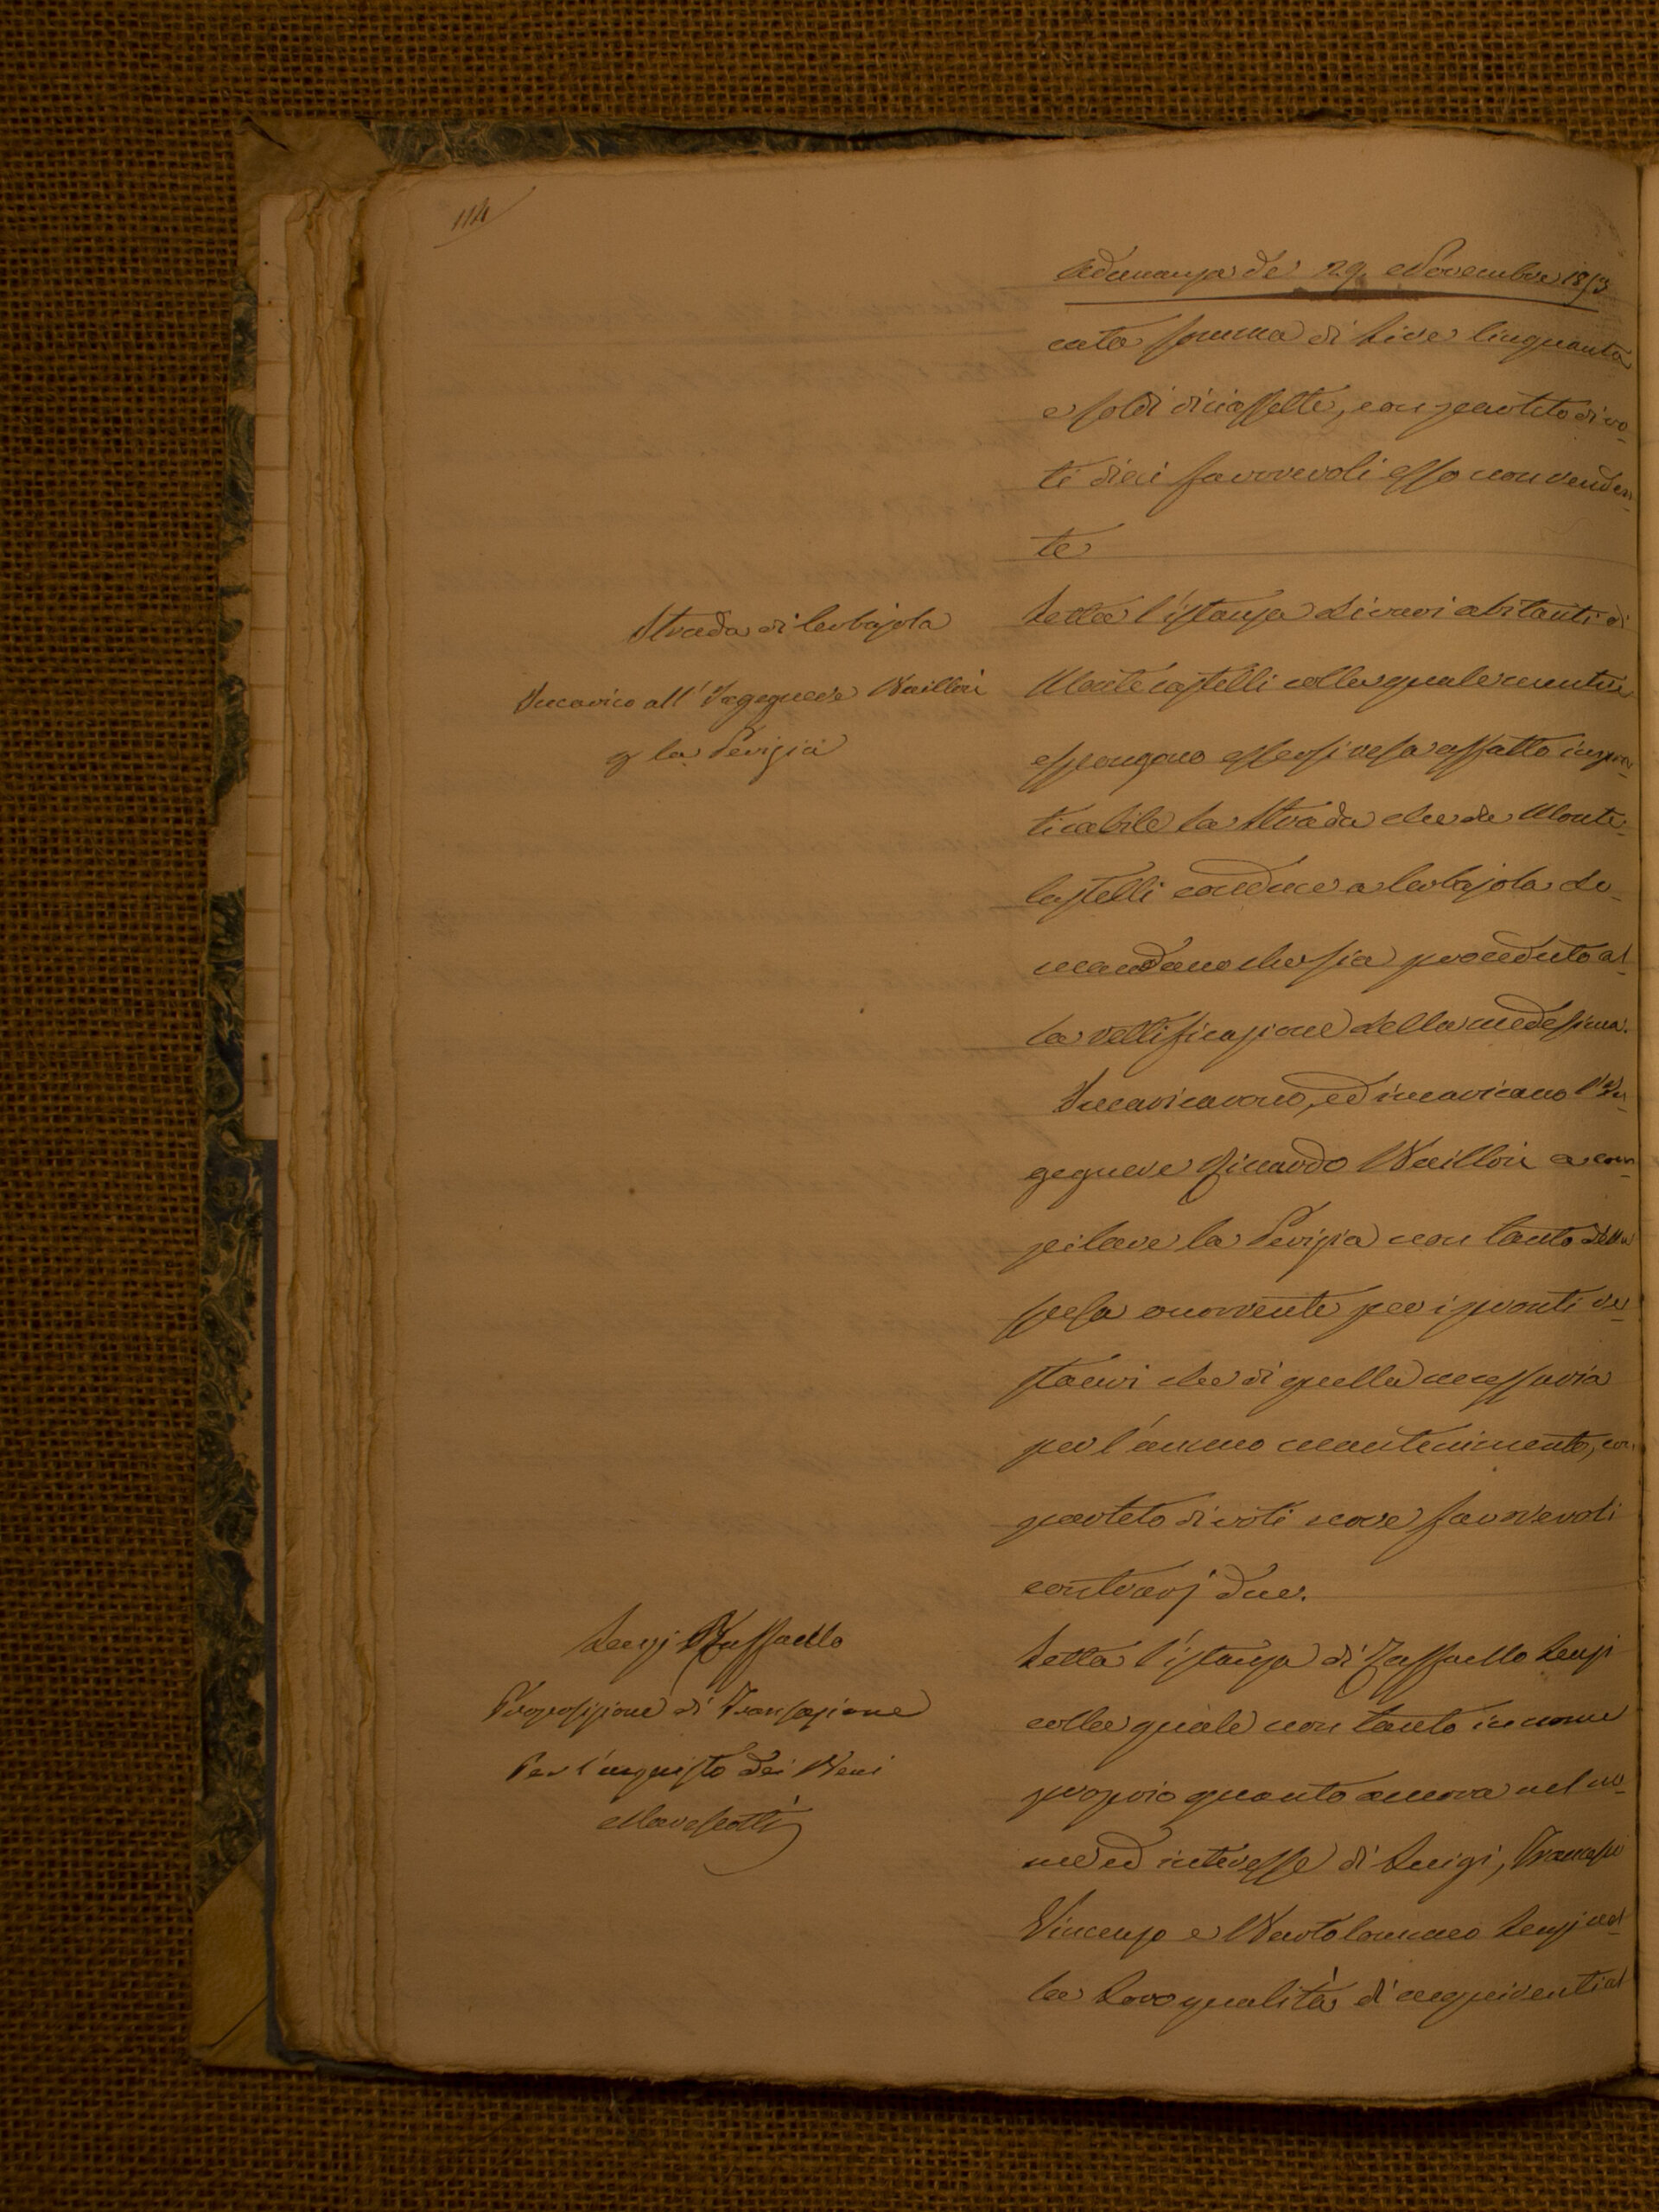 114
Adunanza de' 29. Novembre 1853
cata somma di Lire Cinquanta
e soldi diciassette, con partito di vo-
ti dieci favorevoli esso non venden-
te
Strada di Cerbajola
Incarico all'Ingegnere Bailloni
p la Perizia
Letta l'istanza di vari abitanti di
Monte castelli colla quale mentre
espongono essersi resa affatto impra-
ticabile la Strada che da Monte-
Castelli conduce a Cerbajola do-
mandano che sia proceduto al-
la rettificazione della medesima.
Incaricarono, ed incaricano l'In-
gegnere Riccardo Bailloni a com-
pilare la Perizia non tanto della
spesa occorrente per i pronti re-
stauri che di quella necessaria
per l'annuo mantenimento, con
partito di voti nove favorevoli
contrarj due.
Lenzi Raffaello
Proposizione di Transazione
Per l'acquisto dei Beni
Marescotti
Letta l'istanza di Raffaello Lenzi
colla quale non tanto in nome
proprio quanto ancora nel no-
me ed interesse di Luigi, Francesco
Vincenzo e Bartolommeo Lenzi nel-
la Loro qualità d'acquirenti al